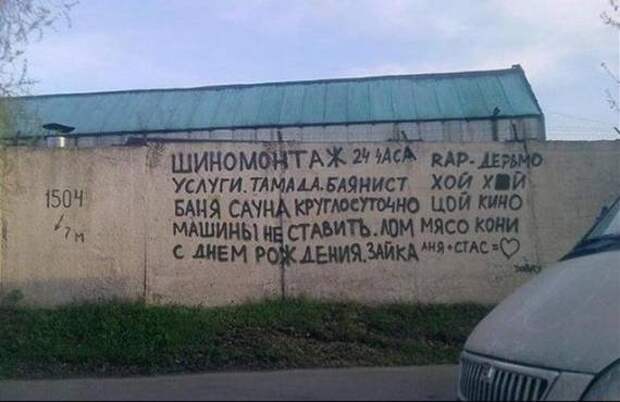 1504
7 М
ШИНОМОНТАЖ 24 ЧАСА RAP-ДЕРЬМО
УСЛУГИ. ТАМАДА. БАЯНИСТ ХОЙ Х Й
БАНЯ САУНА КРУГЛОСУТОЧНО ЦОЙ КИНО
МАШИНЫ НЕ СТАВИТЬ. ЛОМ МЯСО КОНИ
С ДНЕМ РОЖДЕНИЯ. ЗАЙКА АНЯ+СТАС=♡